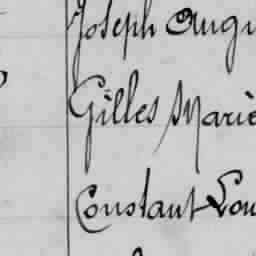 Joseph Augu
Gilles Marie
Constant Lou